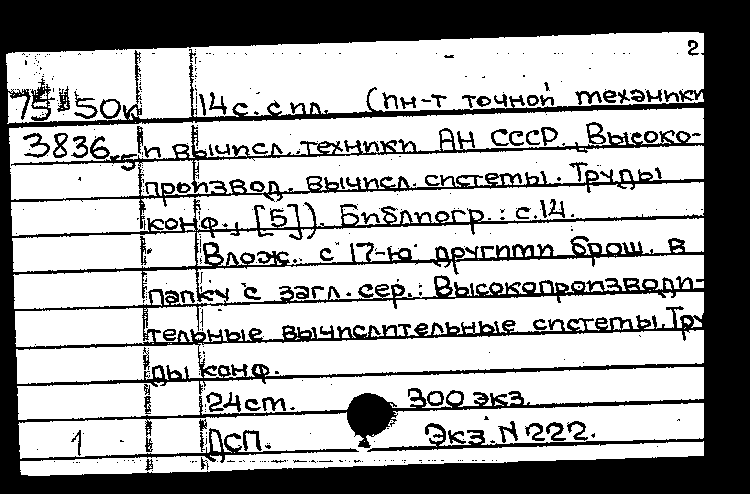 2.
75-50к 14 с. с ил. (Ин-т точной механики
3836к5 и вычисл. техники АН СССР. Высоко-
производ. вычисл. системы. Труды
конф., [5]). Библиогр.: с.14.
Влож. с 17-ю другими брош. в
папку с загл. сер.: Высокопроизводи-
тельные вычислительные системы. Тру
ды конф.
24 ст. 300 экз.
1 ДСП. Экз. N 222.